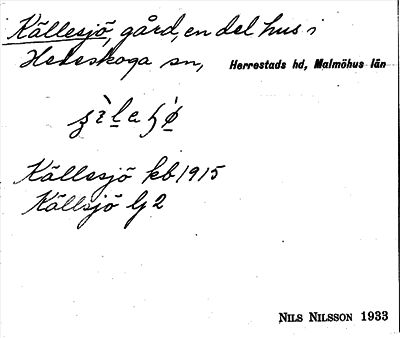 Källesjö, gård, en del hus i
Hedeskoga sn, Herrestads hd, Malmöhus län
Källesjö kb 1915
Källsjö G 2
NILS NILSSON 1933